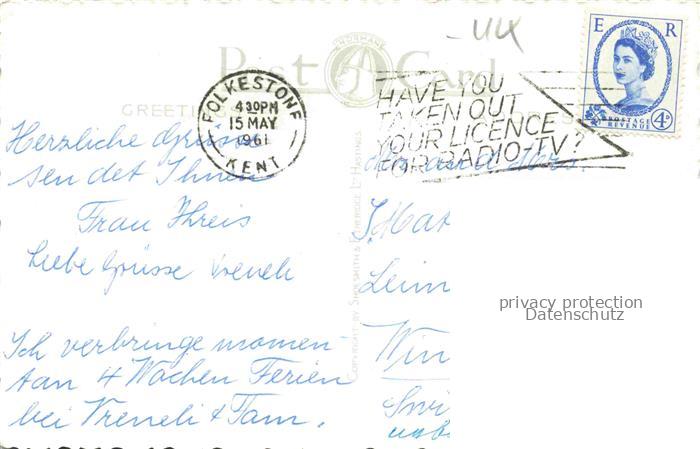 Post Card
NORMAN
GREETI
FOLKESTONE
KENT
4 30PM
15 MAY
1961
HAVE YOU
TAKEN OUT
YOUR LICENCE
FOR RADIO-TV?
E R
POSTAGE
REVENUE
4D
Herzliche Grüsse
sendet Ihnen
Frau Threis
Liebe Grüsse Vreneli
Ich verbringe momen-
tan 4 Wochen Ferien
bei Vreneli & Tam.
COPYRIGHT BY SHOESMITH & ETHERIDGE LTD HASTINGS
Leim
Win
privacy protection
Datenschutz